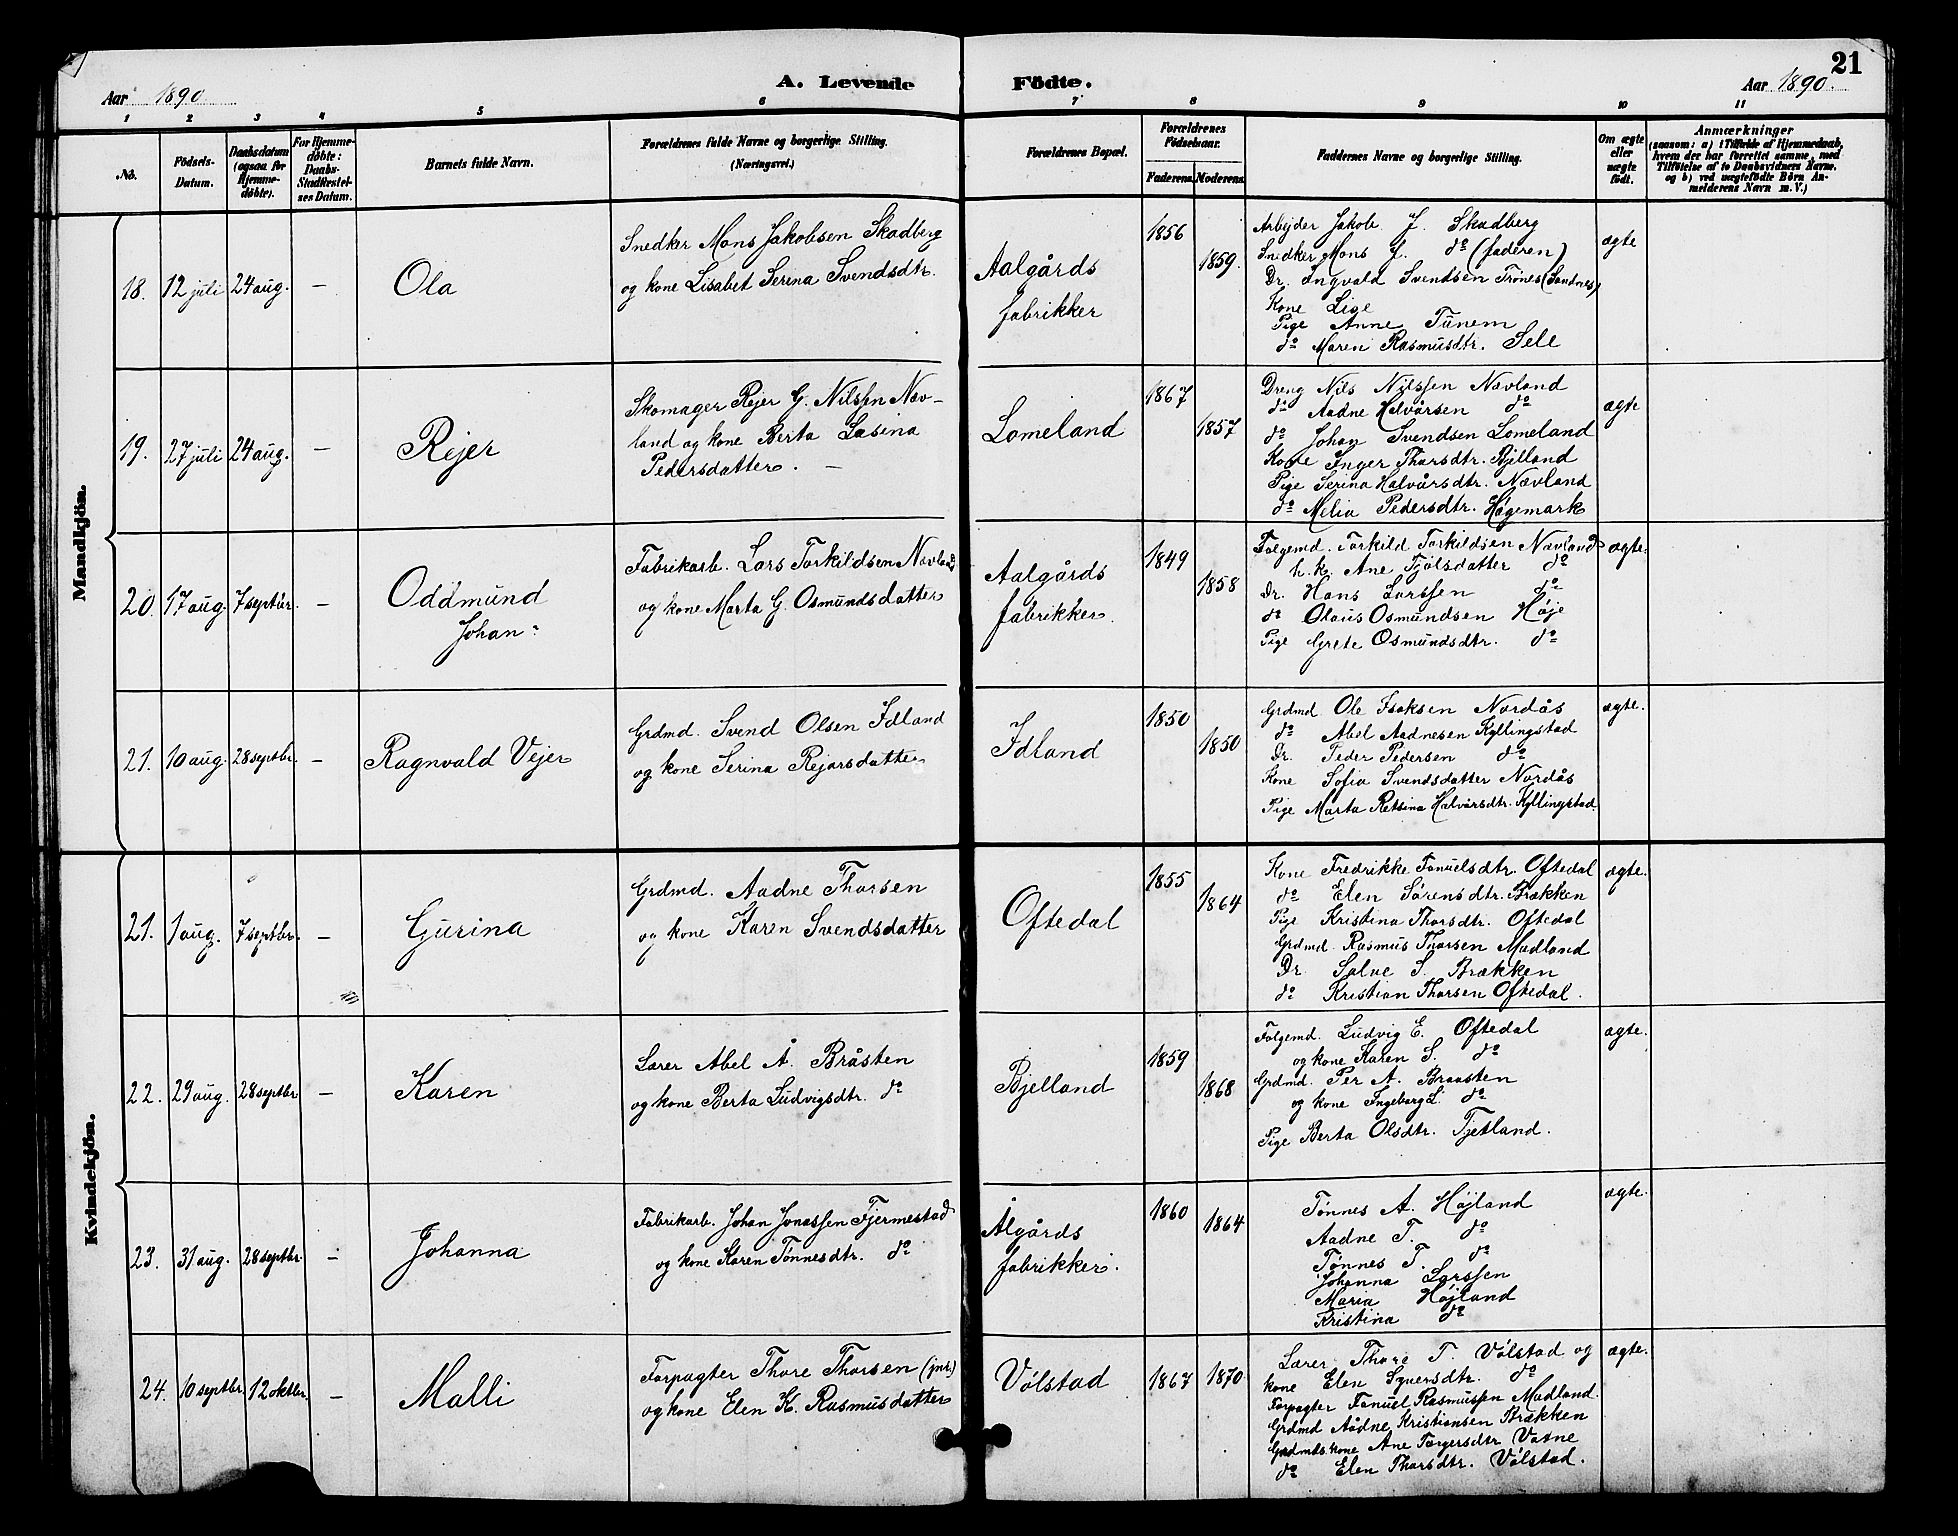 21
Aar 1890
A. Levende Födte.
Aar 1890.
1 2 3 4 5 6 7 8 9 10 11
No.
Födsels-Datum.
Daabsdatum (ogsaa for Hjemme-döbte).
For Hjemme-döbte: Daabs-Stadfæstel-ses Datum.
Barnets fulde Navn.
Forældrenes fulde Navne og borgerlige Stilling.
(Næringsvei.)
Forældrenes Bopæl.
Forældrenes Födselsaar.
Faderens. Moderens.
Faddernes Navne og borgerlige Stilling.
Om ægte eller uægte født.
Anmærkninger
(saasom: a) i Tilfælde af Hjemmedaab,
hvem der har forrettet samme, med
Tilföielse af to Daabsvidners Navne,
og b) ved uægtefödte Börn An-
melderens Navn m. V.)
Mandkjön.
18. 12 juli 24 aug. – Ola
Snedker Mons Jakobsen Skadberg
og kone Lisabet Serina Svendsdtr.
Aalgårds
fabrikker
1856 1859.
Arbejder Jakob J. Skadberg
Snedker Mons J. do (faderen)
Dr. Ingvald Svendsen Trönes (Sandnes)
Kone Lise
Pige Anne Tunem
do Maren Rasmusdtr. Sele
ægte
19. 27 juli 24 aug. – Rejer
Skomager Rejer G. Nilssen Næv-
land og kone Berta Lasina
Pedersdatter. –
Lomeland
1867 1857
Dreng Nils Nilssen Nævland
do Aadne Halvårsen do
do Johan Svendsen Lomeland
Kone Inger Thorsdtr. Bjelland
Pige Serina Halvårsdtr. Nævland
do Melia Pedersdtr. Høgemark
ægte
20. 17 aug. 7 septbr. – Oddmund
Johan
Fabrikarb. Lars Torkildsen Nævland
og kone Marta G. Osmundsdatter
Aalgårds
fabrikker.
1849 1858
Folgemd. Torkild Torkildsen Nævland
h.k. Ane Tjölsdatter do
Dr. Hans Larssen do
do Olaus Osmundsen Høje
Pige Grete Osmundsdtr. do
ægte.
21. 10 aug. 28 septbr. – Ragnvald Vejer
Grdmd. Svend Olsen Idland
og kone Serina Rejersdatter
Idland
1850 1850
Grdmd Ole Isaksen Nordås
do Abel Aadnesen Kyllingstad
Dr. Peder Pedersen do
Kone Sofia Svendsdatter Nordås
Pige Marta Retsina Halvårsdtr. Kyllingstad
ægte.
Kvindekjön.
21. 1 aug. 7 septbr. – Gurina
Grdmd. Aadne Thorsen
og kone Karen Svendsdatter
Oftedal
1855 1864
Kone Fredrikke Fanuelsdtr. Oftedal
do Elen Sörensdtr. Brækken
Pige Kristina Thorsdtr. Oftedal
Grdmd. Rasmus Thorsen Madland
Dr. Salve S. Brækken
do Kristian Thorsen Oftedal.
ægte.
22. 29 aug. 28 septbr – Karen
Lærer Abel Å. Bråsten
og kone Berta Ludvigsdtr. do
Bjelland
1859 1868
Folgemd. Ludvig E. Oftedal
og kone Karen S. do
Grdmd. Per A. Braasten
og kone Ingeborg L. do
Pige Berta Olsdtr. Tjetland.
ægte.
23. 31 aug. 28 septbr – Johanna
Fabrikarb. Johan Jonassen Fjermestad
og kone Karen Tønnesdtr. do
Ålgårds
fabrikker.
1860 1864
Tønnes A. Højland
Aadne T. do
Tønnes T. do
Johanna Larssen
Maria Højland
Kristina do
ægte.
24. 10 septbr 12 oktbr. – Malli
Forpagter Thore Thorsen (jnr.)
og kone Elen K. Rasmusdatter
Vølstad
1867 1870
Lærer Thore T. Vølstad og
kone Elen Syversdtr. do
Forpagter Fanuel Rasmussen Madland.
Grdmd Aadne Kristiansen Brækken
Grdmds. kone Ane Torgersdtr Vatne
do Elen Thorsdtr. Vølstad.
ægte.